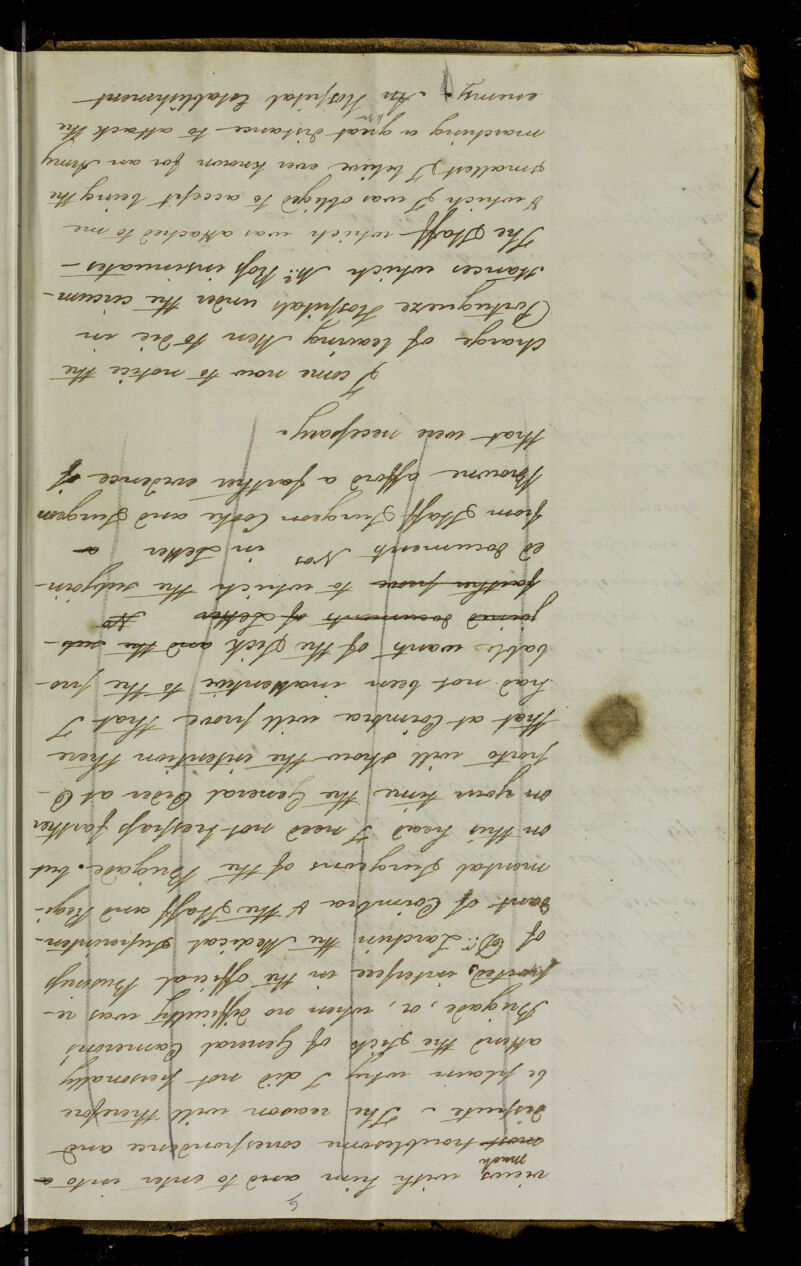 views with him and to enter into a
much
most troublesome correspondence and
dispute. The reason will therefore
be plain why I did not personally
attend the sick of General Camerons
Brigade, or, when no difficulty was re-
ported, interfere in the official Business
of Dr. Larchin the Medical Superinten-
dant of Coimbra & the Staff and Regi-
mental Surgeons of the Brigade. but
on this head I need not trespass farther
on your time. the General Order at O-
porto will show the intention there
that at Coimbra will prove that I
had not been inattentive to the pro-
bable wants of the Sick and the sub-
joined documents of Letter
farther prove to which the subjoin-
ed documents Nos in Letter a
from Staff Surgeon Cooke and Surgeon
Browne afford a farther evidence if
that were necessary.
I come now to notice the
charge of leaving Men to die in
Portugueze Hospitals under the circum-
stances which Mr. Ross insinuates—
The Staff which was attached to me
& which I was obliged to accept being the
smallest I believe ever known for an Army
marching a great distance to attack the
enemy. An Hospital Establishment